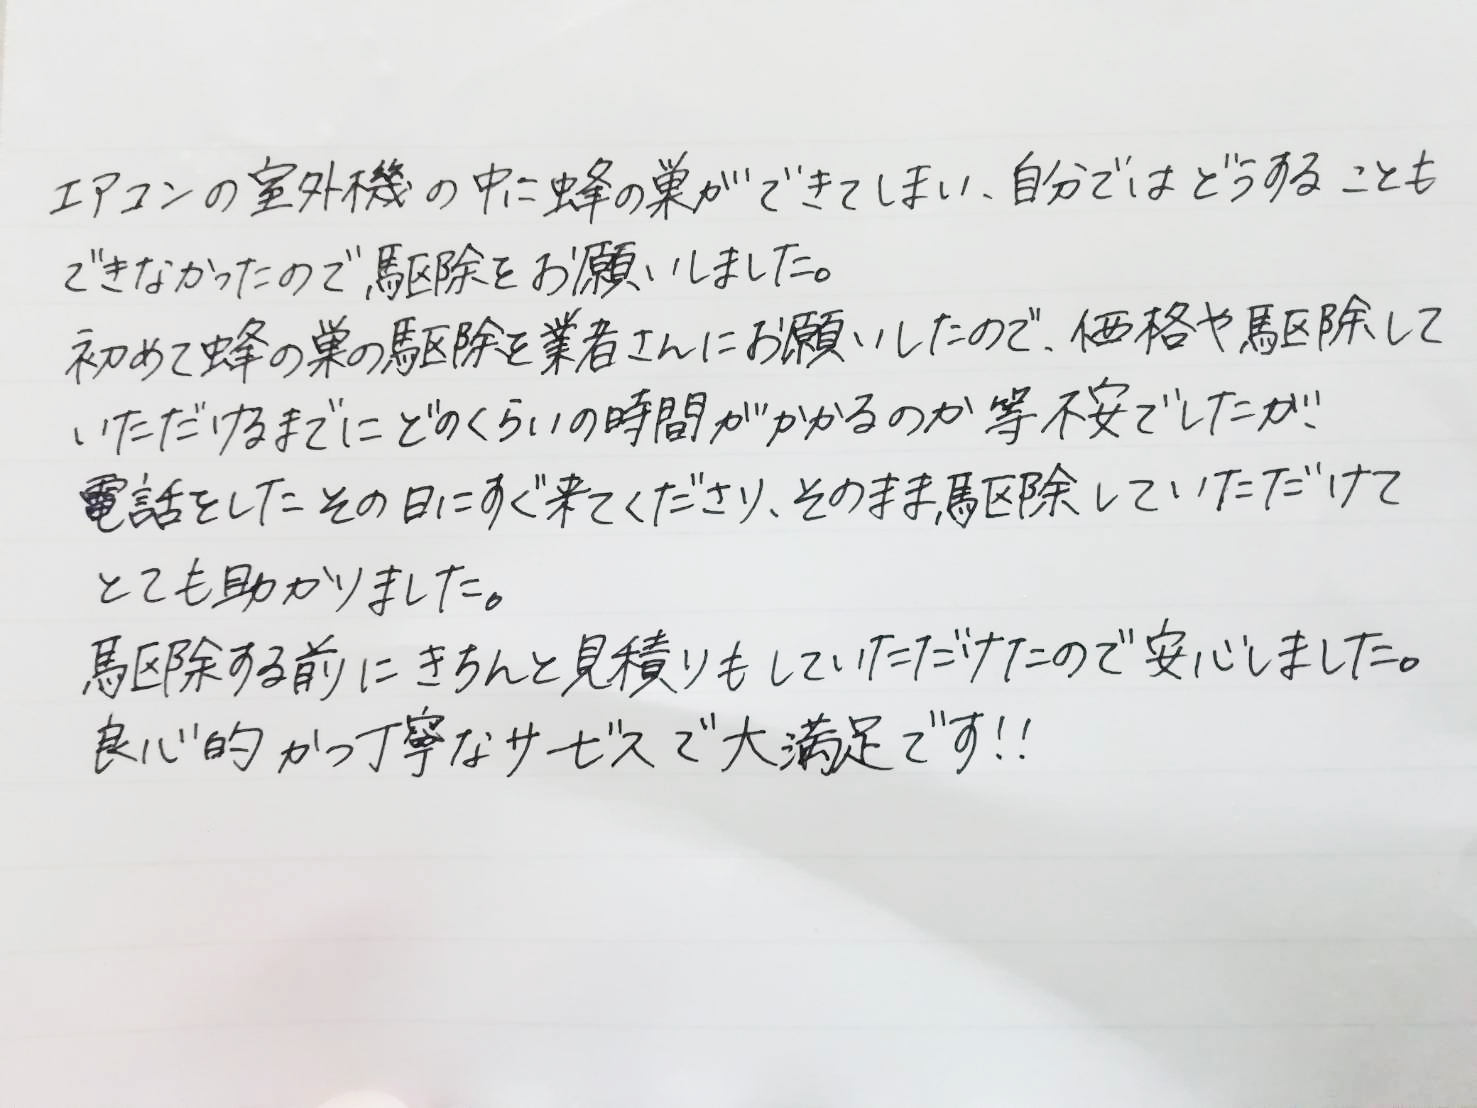 エアコンの室外機の中に蜂の巣ができてしまい、自分ではどうすることも
できなかったので駆除をお願いしました。
初めて蜂の巣の駆除を業者さんにお願いしたので、価格や駆除して
いただけるまでにどのくらいの時間がかかるのか等不安でしたが、
電話をしたその日にすぐ来てくださり、そのまま駆除していただけて
とても助かりました。
駆除する前にきちんと見積りもしていただけたので安心しました。
良心的かつ丁寧なサービスで大満足です!!